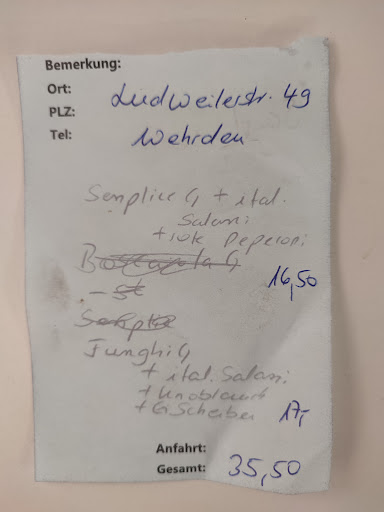 Bemerkung:
Ort: Ludweilerstr. 49
PLZ:
Tel: Wehrden
Semplice G + ital.
Salami
+ 10k Peperoni
16,50
Funghi G
+ ital. Salami
+ Knoblauch
+ G. Scheiben 17,-
Anfahrt:
Gesamt: 35,50